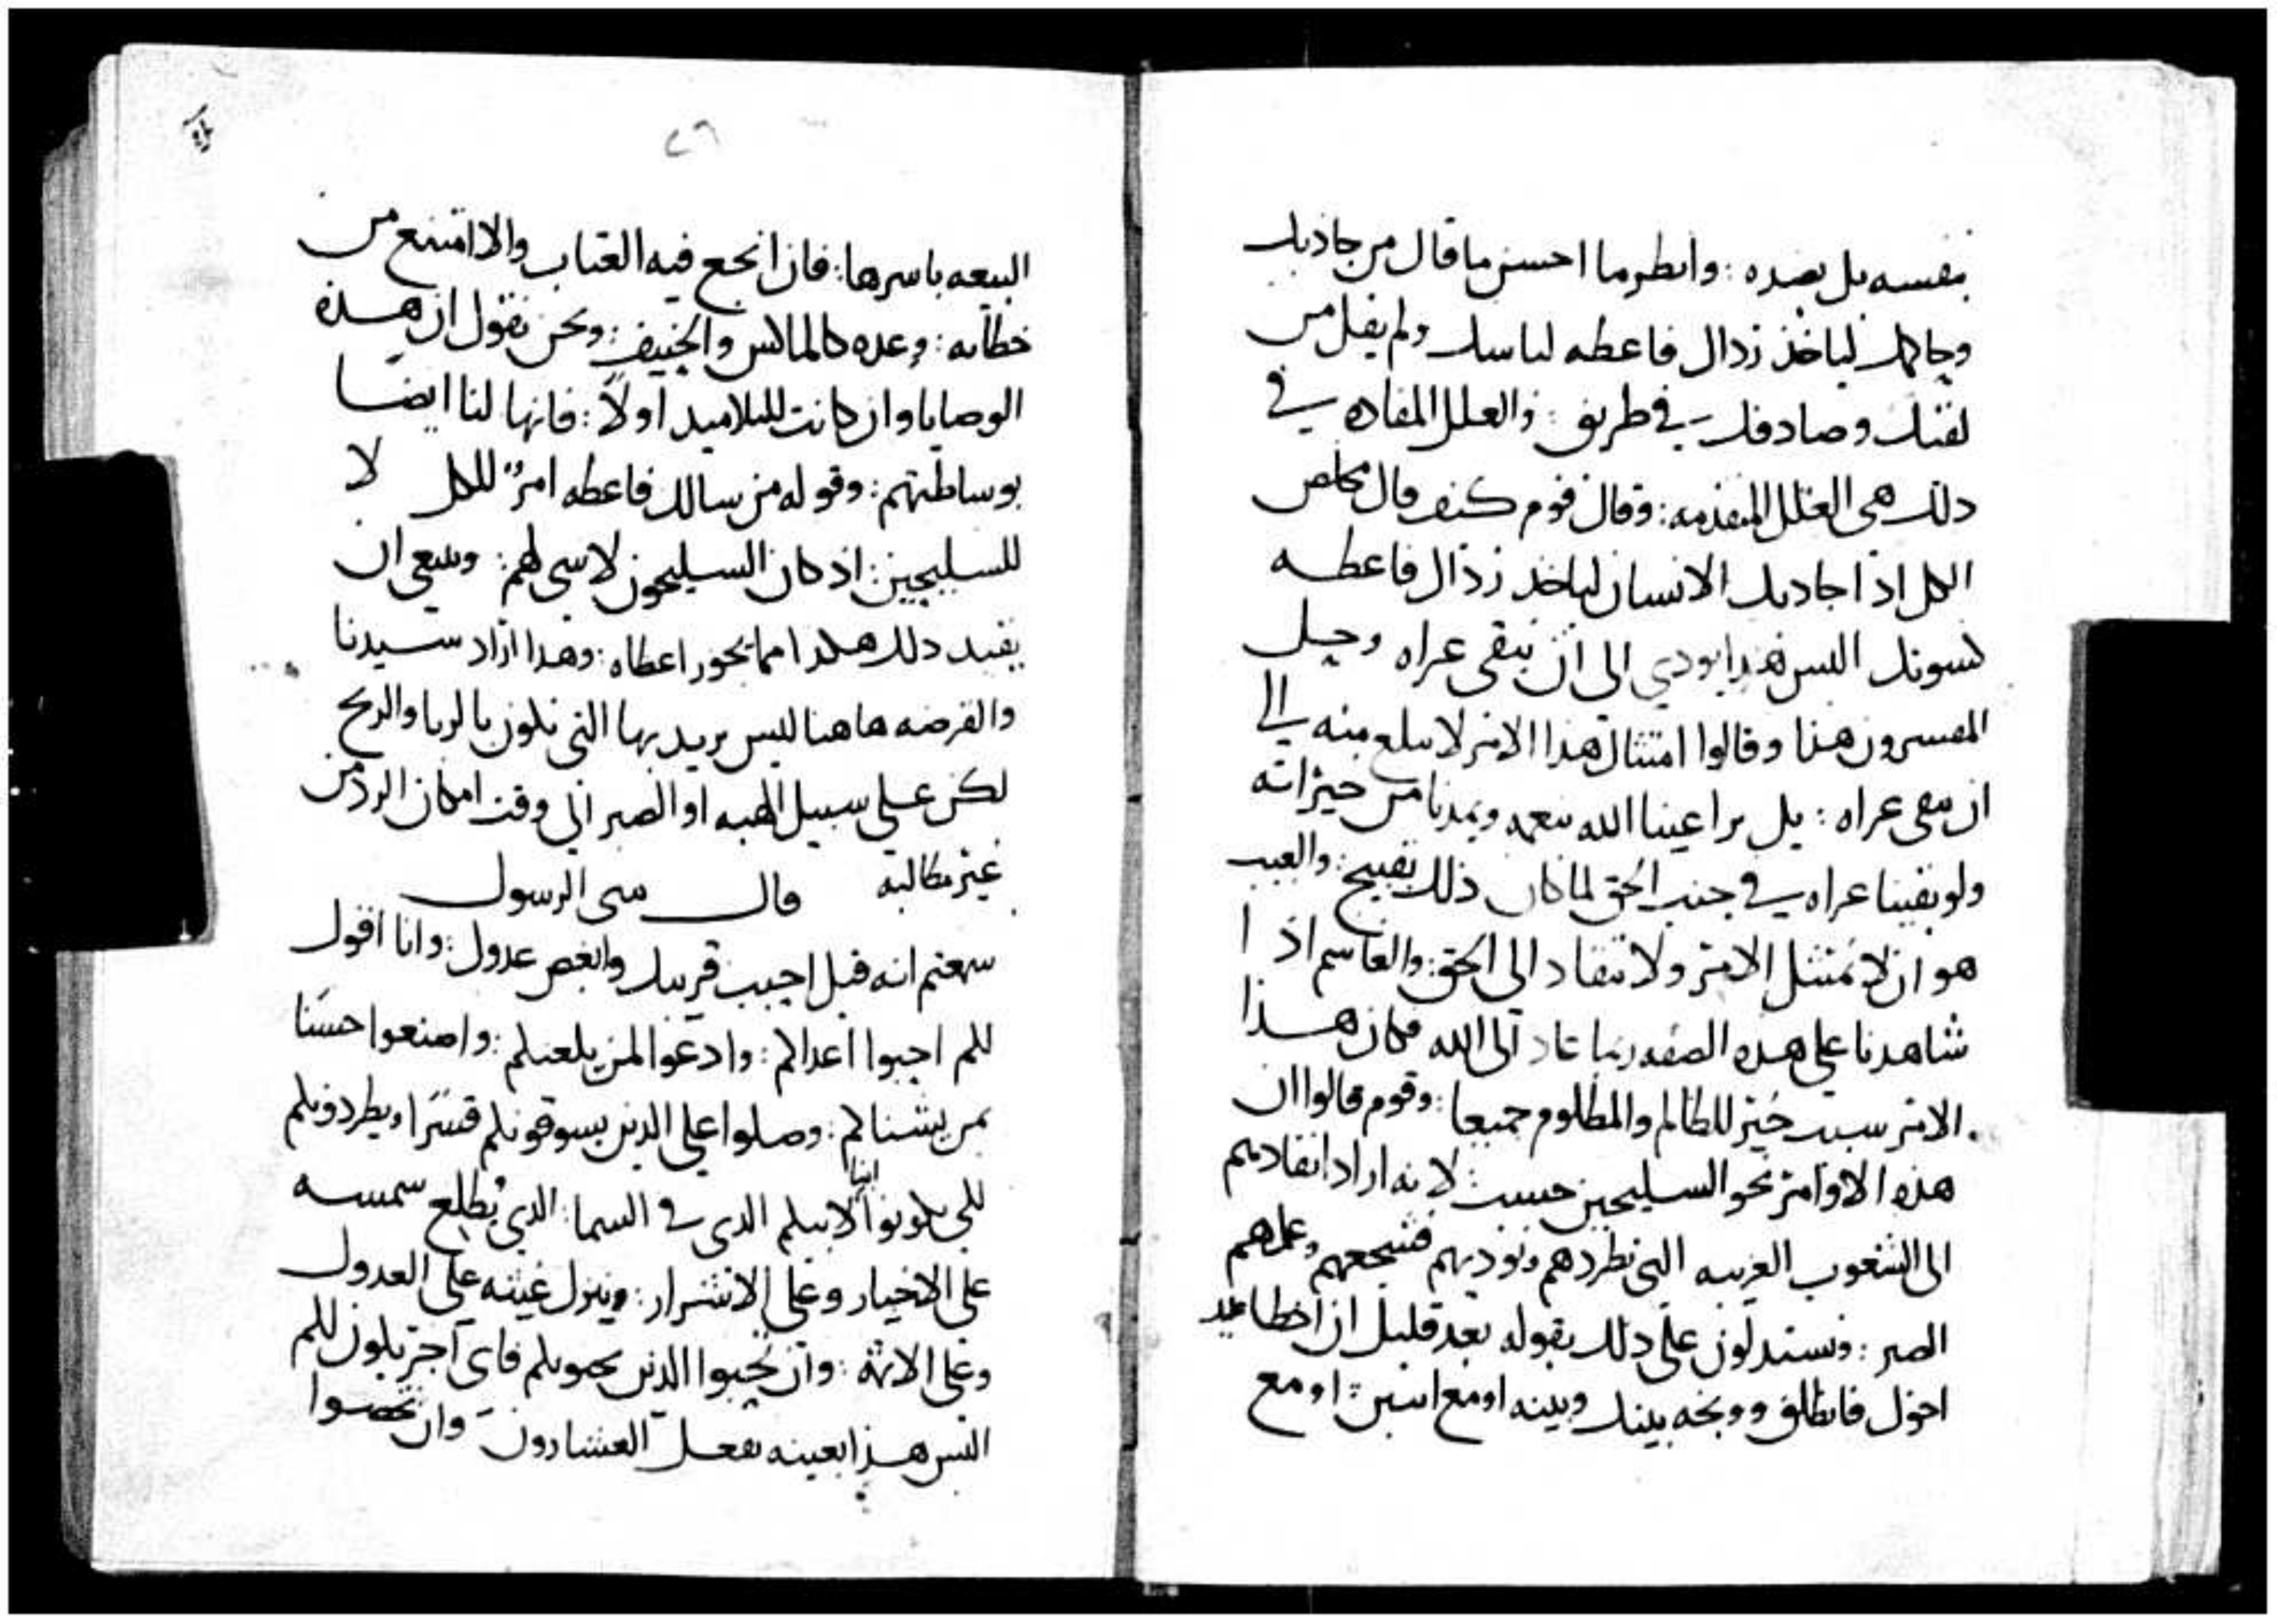 بنفسه بل بضده : وانظر ما احسن ما قال من جاذبك
وحاكمك لياخذ زذال فاعطه لباسك ولم يقل من
لقيك وصادفك في طريق : والعلل المفاده في
ذلك هي العلل المتقدمه : وقال قوم كيف قال مخلص
الكل اذا جاذبك الانسان لياخذ زذال فاعطه
اليس هذا يودي الى ان نبقى عراه وحيل
المفسرون هذا وقالوا امتثال هذا الامر لا يبلغ منه الى
ان نبقى عراه : بل يراعينا الله بنعمه ويمدنا من خيراته
ولو بقينا عراه في جنب الحق لما كان ذلك بقبيح : والعيب
هو ان لا نمتثل الامر ولا ننقاد الى الحق : والغاشم اذا
شاهدنا على هذه الصفه ربما عاد الى الله فكان هذا
الامر سبب خير للظالم والمظلوم جميعا : وقوم قالوا ان
هذه الاوامر نحو السليحين حسب : لانه اراد انفاذهم
الى الشعوب الغريبه التي تطردهم وتوذيهم فشجعهم وعلمهم
الصبر : ونستدلون على ذلك بقوله بعد قليل ان اخطا عليك
اخوك فانطلق ووبخه بينك وبينه او مع اثنين : او مع
٢٦
البيعه باسرها : فان انجع فيه العتاب والا امتنع من
خطابه : وعده كالماكس والحنيف : ونحن نقول ان هذه
الوصايا وان كانت للتلاميذ اولا : فانها لنا ايضا
بوساطتهم : وقوله من سالك فاعطه امرٌ للكل لا
للسليحين : اذ كان السليحون لا شي لهم : وينبغي ان
يفيد ذلك هكذا مما يجوز اعطاه : وهذا اراد سيدنا
والقرضه هاهنا ليس يريد بها التي تكون بالربا والربح
لكن على سبيل الهبه او الصبر الى وقت امكان الرد من
غير مطالبه قال متى الرسول
سمعتم انه قيل احبب قريبك وابغض عدوك : وانا اقول
لكم احبوا اعداكم : وادعوا لمن يلعنكم : واصنعوا حسنا
بمن يشناكم : وصلوا على الذين يسوقونكم قسرا ويطردونكم
لكي تكونوا ابنا لابيكم الذي في السما : الذي يُطلع شمسه
على الاخيار وعلى الاشرار : وينزل غيثه على العدول
وعلى الاثمه : وان تحبوا الذين يحبونكم فاي اجر يكون لكم
اليس هذا بعينه يفعل العشارون وان